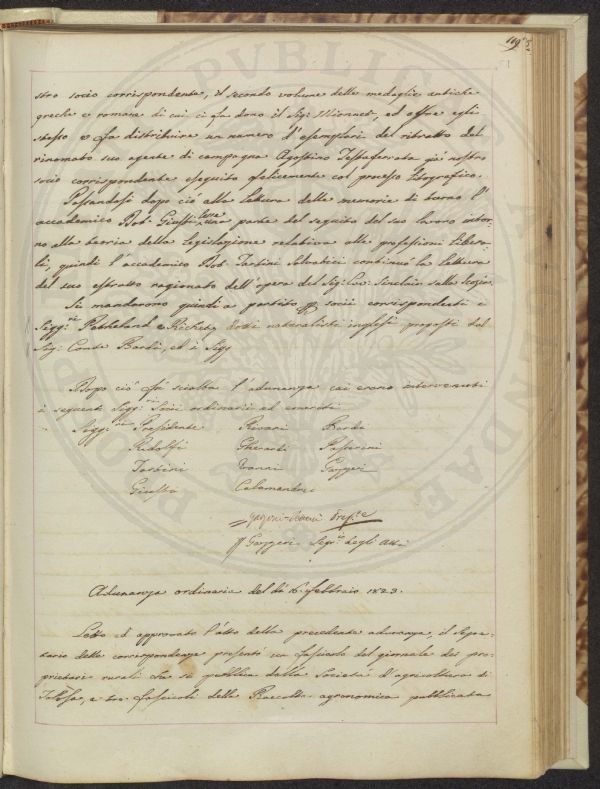 119
stro socio corrispondente, il secondo volume delle medaglie antiche
greche e romane di cui ci fa dono il Sig: Mionnet, ed offre egli
stesso e fa distribuire un numero d'esemplari del ritratto del
rinomato suo agente di campagna Agostino Testaferrata già nostro
socio corrispondente eseguito felicemente col processo litografico.
Passandosi dopo ciò alla lettura delle memorie di turno l'
accademico Dot: Giusti lesse una parte del seguito del suo lavoro intor-
no alla teoria della legislazione relativa alle professioni libera-
li, quindi l'accademico Dot: Tartini Salvatici continuò la lettura
del suo estratto ragionato dell'opera del Sig: Sinclair sulla Scozia.
Si mandarono quindi a partito p socii corrispondenti i
Sigg:ri Pentland e Ricketts dotti naturalisti inglesi proposti dal
Sig: Conte Bardi, ed i Sigg
Dopo ciò fù sciolta l'adunanza cui erano intervenuti
i seguenti Sigg:ri Socii ordinarii ed emeriti
Sigg:ri Presidente Rivani Bardi
Ridolfi Gherardi Passerini
Tartini Vanni Gazzeri
Giusti Calamandrei
Presde
G Gazzeri Segr:o degli Atti
Adunanza ordinaria del dì 6 febbraio 1823.
Letto ed approvato l'atto della precedente adunanza, il Segre-
tario delle corrispondenze presentò un fascicolo del giornale dei pro-
prietari rurali che si pubblica dalla Società d'agricoltura di
Tolosa, e tre fascicoli della Raccolta agronomica pubblicata